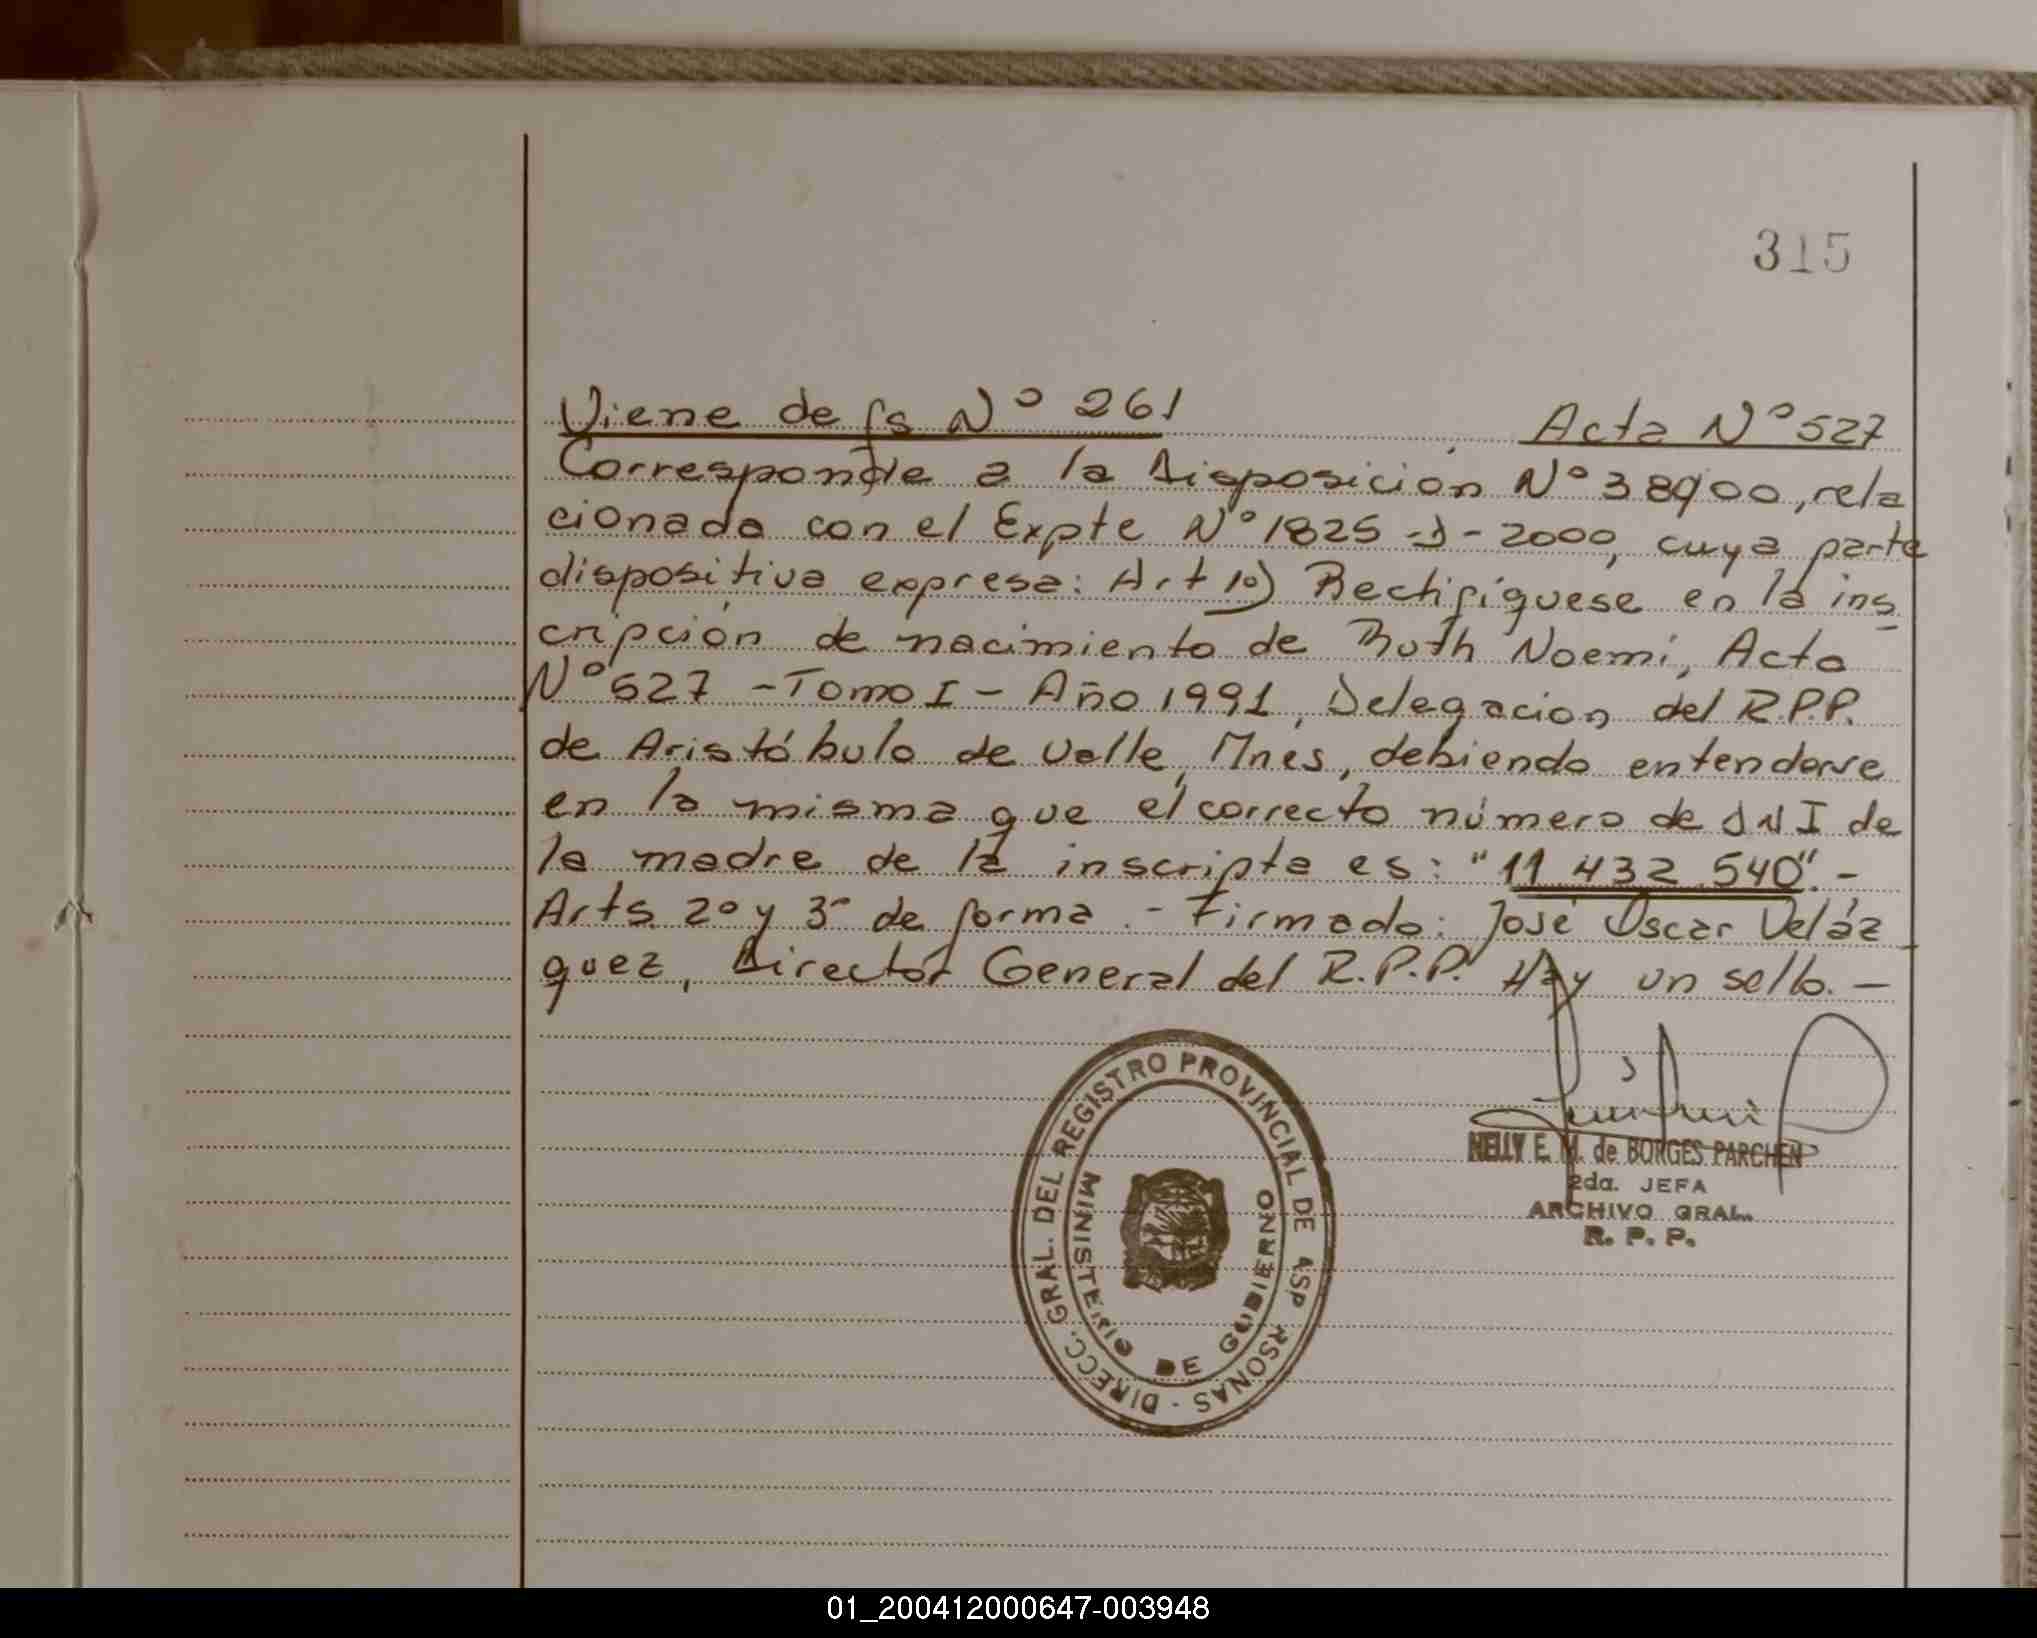 315
Viene de fs Nº 261 Acta Nº 527
Corresponde a la Disposición Nº 389/00, rela
cionada con el Expte Nº 1825 -D- 2000, cuya parte
dispositiva expresa: Art 1º) Rectifíquese en la ins
cripción de nacimiento de Ruth Noemí, Acta
Nº 527 - Tomo I - Año 1991, Delegación del R.P.P.
de Aristóbulo de Valle, Mnes, debiendo entenderse
en la misma que el correcto número de DNI de
la madre de la inscripta es: "11.432.540". -
Arts. 2º y 3º de forma. - Firmado: José Oscar Veláz
quez, Director General del R.P.P. Hay un sello. -
DIRECC. GRAL. DEL REGISTRO PROVINCIAL DE RSONAS
MINISTERIO DE GOBIERNO
NELLY E. M. de BORGES PARCHEN
2da. JEFA
ARCHIVO GRAL.
R. P. P.
01_200412000647-003948